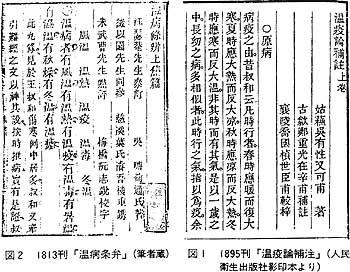 溫疫論補註上卷
姑蘇吳有性又可甫 著
古歙鄭重光在辛甫補註
襄陵喬國楨世臣甫較梓
○原病
病疫之由昔叔和云凡時行者春時應暖而復大
寒夏時應大熱而反大涼秋時應涼而反大熱冬
時應寒而反大溫非其時而有其氣是以一歲之
中長幼之病多相似者此時行之氣指以為疫余
図1 1895刊「温疫論補注」(人民
衛生出版社影印本より)
溫病條辨上焦篇
汪瑟菴先生參訂 吳 瑭鞠通氏著
徵以園先生同參
朱武曹先生點評
風溫 溫熱 溫疫 溫毒 冬溫
一溫病者有風溫有溫熱有溫疫有溫毒有暑溫
有濕溫有秋燥有冬溫有溫瘧
此九條見於王叔和傷寒例中居多叔和又牽
引難經之文以神其說按時推病實有是證
図2 1813刊「温病条弁」(筆者蔵)